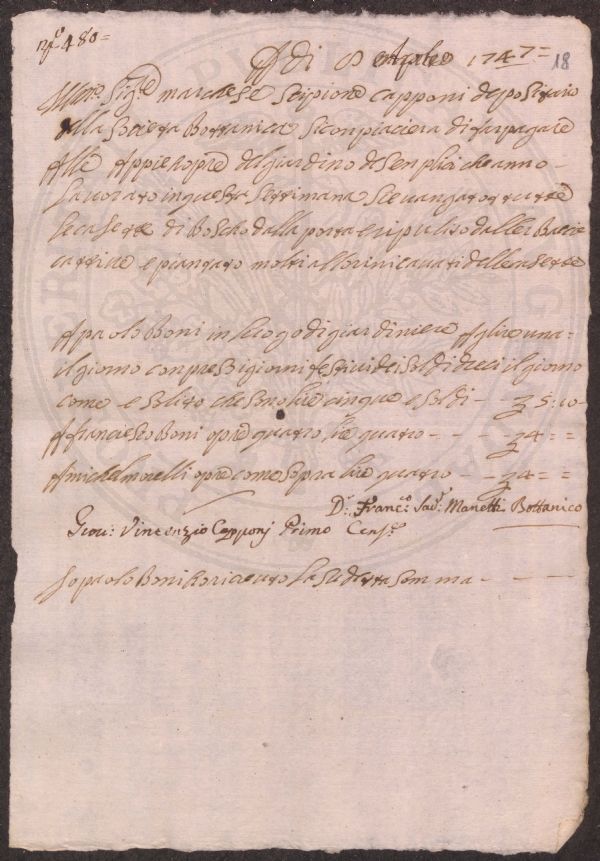 N.o 480=
A di 8 Aprile 1747= 18
Illmo Sig.e marchese Scipione Capponi depositario
della Societa Bottanica Si conpiacera di far pagare
Alle Appie hopre del giardino de Senplici che anno
Lavorato in questa Settimana
le casette di Boscho dalla porta e ripulito dalle
e piantato molti allorini cavati delle casette
A paolo Boni in luogo di giardiniere A lire una=
il giorno conpresi giorni festivi dei Soldi dieci il giorno
come e Solito che Sono lire cinque e Soldi - - £ 5:10
A francesco Boni opre quatro lire quatro - - - - £ 4= =
A michel morelli opre come Sopra lire quatro - - £ 4= =
D.r Franc.o Sav.r Manetti Bottanico
Giov: Vincenzio Capponj Primo Cens.e
Io paolo Boni ho riceuto La Sudetta Somma - - - -